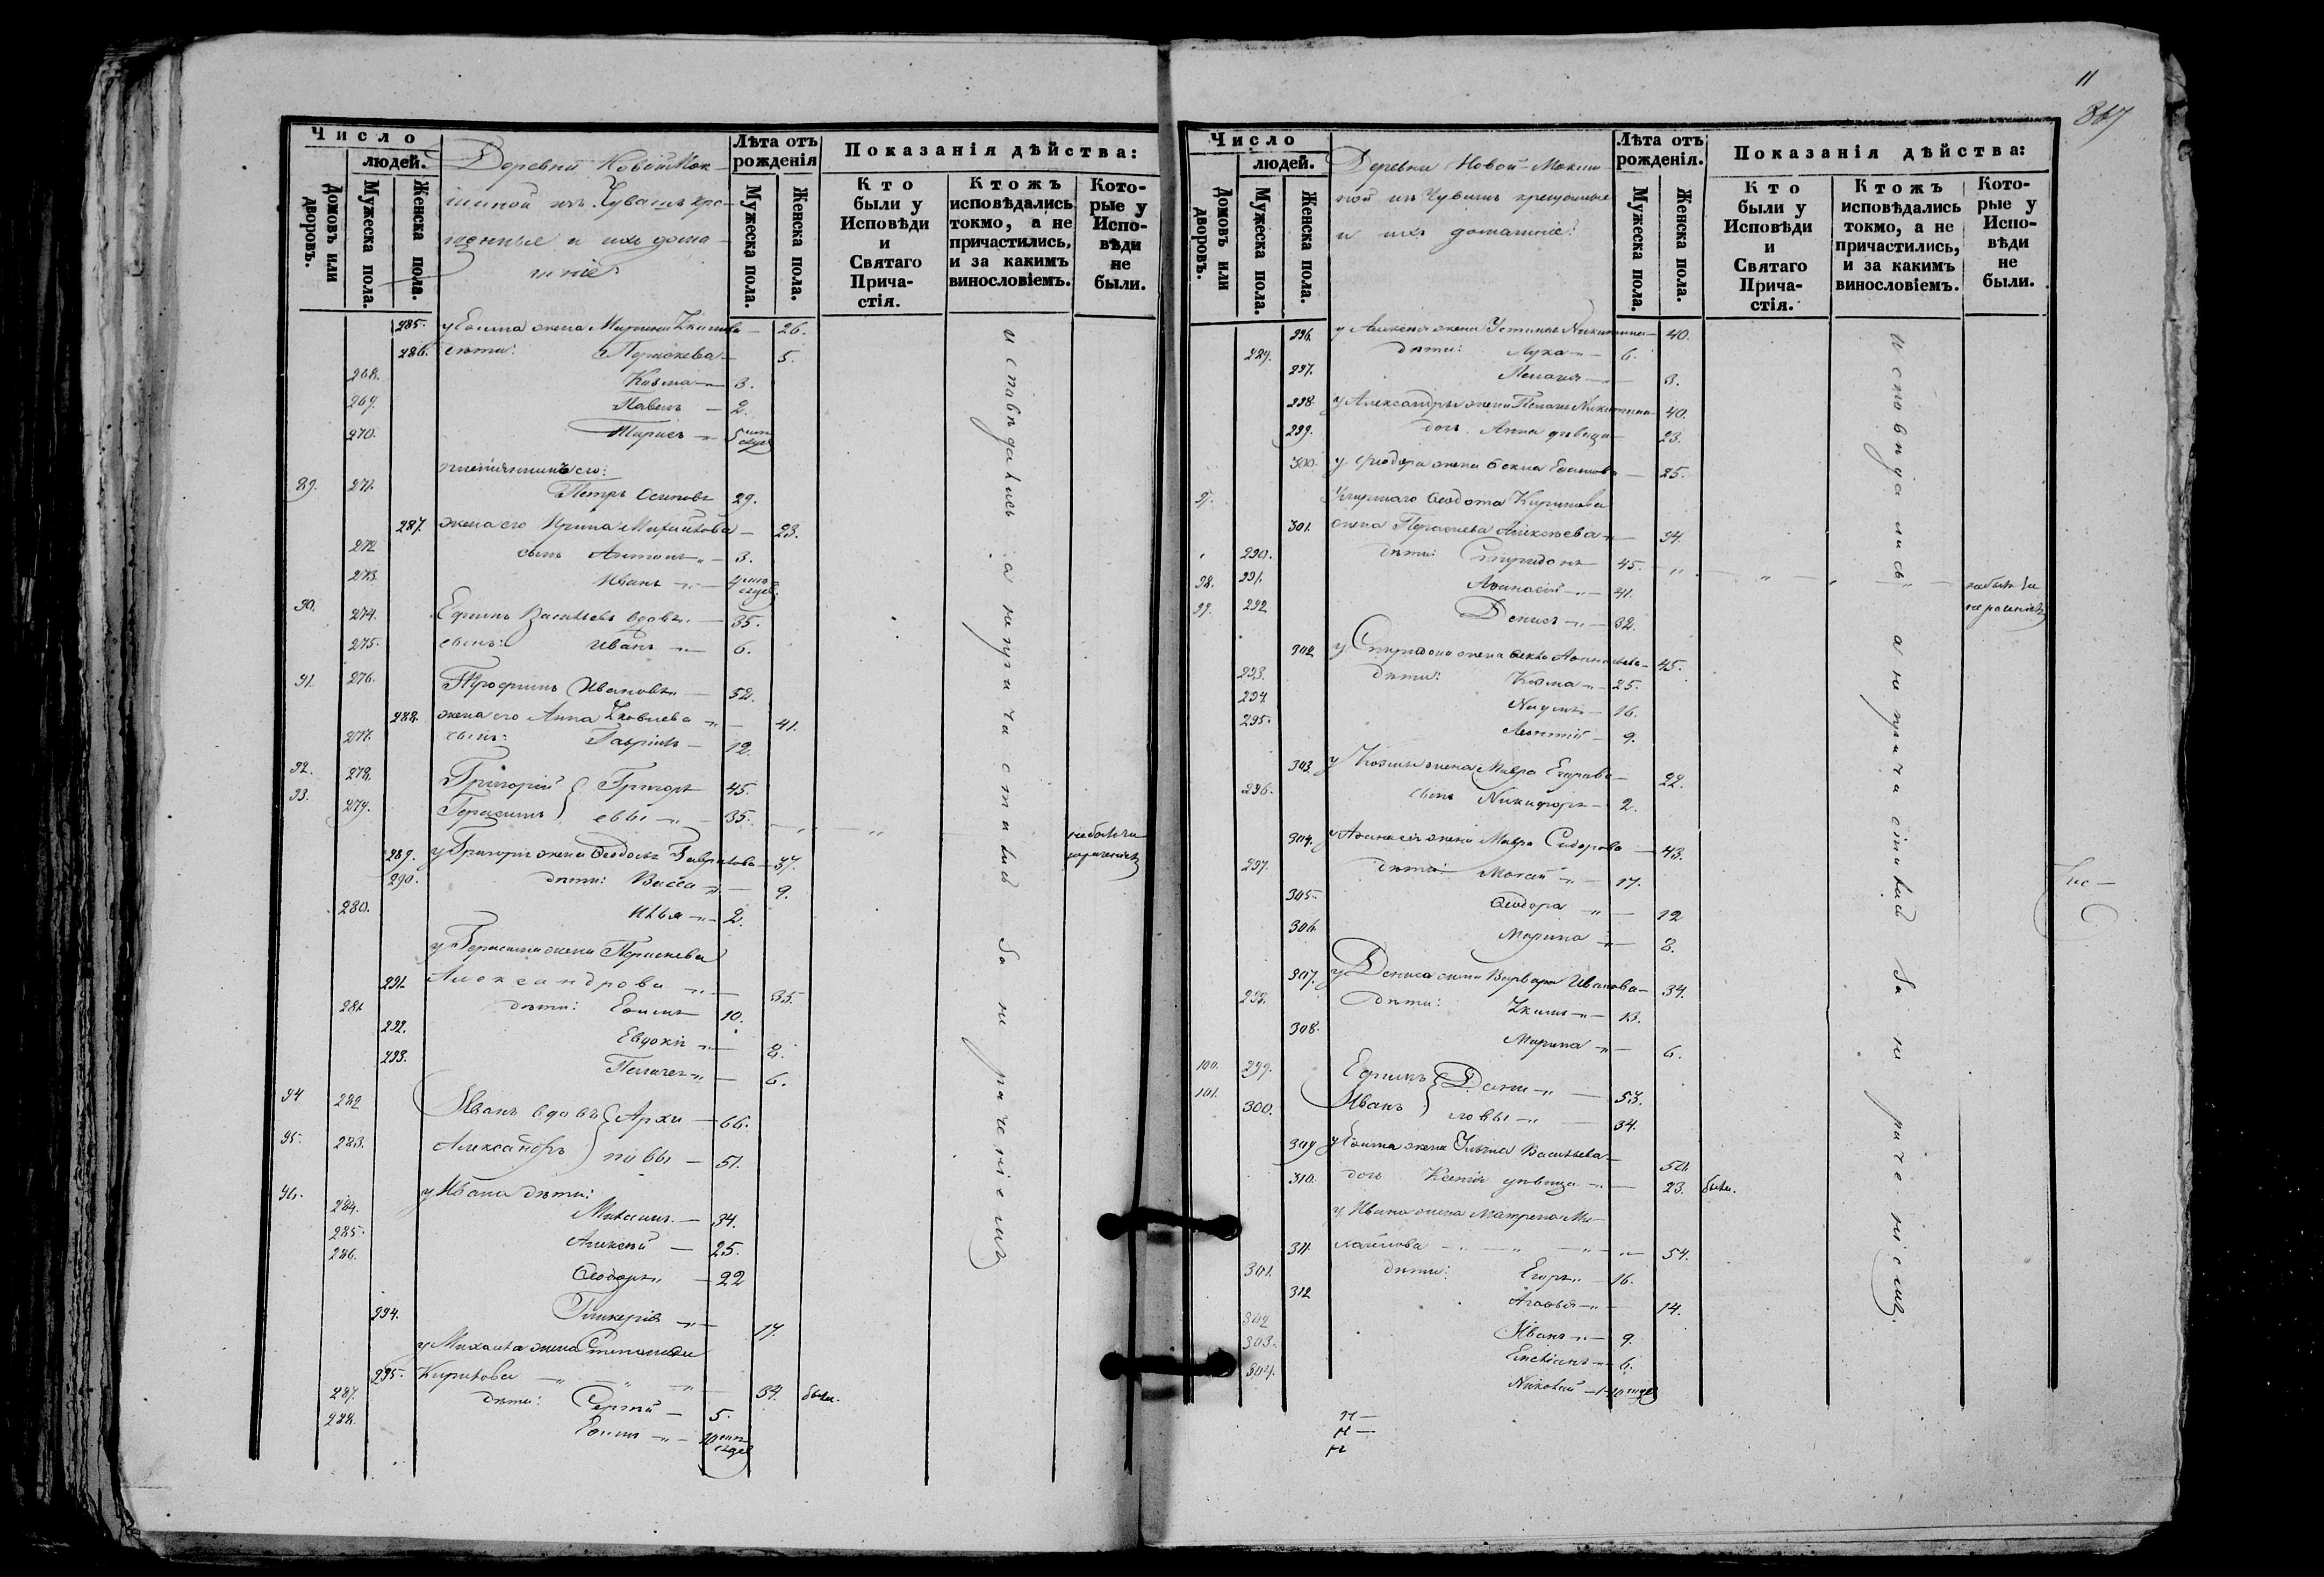 Число
людей.
Домовъ или дворовъ.
Мужеска пола.
Женска пола.
Деревни Новой Мок-
шиной изъ Чувашъ кре-
щенные и ихъ дома-
шніе
Лѣта отъ рожденія
Мужеска пола.
Женска пола.
Показанія дѣйства:
Кто были у Исповѣди и Святаго Прича-стія.
Ктожъ исповѣдались токмо, а не причастились, и за какимъ винословіемъ.
Кото-рые у Испо-вѣди не были.
285. у Еѳима жена Марина Якимова — 26.
286. дѣти: Параскева — 5.
268. Козма — 3.
269. Павелъ — 2.
270. 5
племянникъ его:
89. 271. Петръ Осиповъ 29.
287. жена его Ирина Михайлова — 23.
272. сынъ Антонъ — 3.
273. Иванъ — 4
90. 274. Ефимъ Васильевъ вдовъ — 35.
275. сынъ: Иванъ — 6.
91. 276. Трофимъ Ивановъ — 52.
288. жена его Анна Яковлева — 41.
277. сынъ: Гаврилъ — 12.
92. 278. Григорій Григорь 45
93. 279. Герасимъ евы — 35.
289. у Григорія жена Ѳеодосья Гаврилова — 37.
290. дѣти: Васса — 9.
280. Илья — 2.
у Герасима жена Параскева
291. Александрова — 35.
281. дѣти: Еѳимъ 10.
292. Евдокія — 8.
293. Пелагея — 6.
94 282 Иванъ вдовъ Архи — 66.
95. 283. Александръ повы — 51.
96. у Ивана дѣти:
284. Михаилъ — 34.
285. Алексѣй — 25.
286. Ѳеодоръ — 22
294. Гликерія — 17.
у Михаила жена Степанида
295. Кирилова — 34. были.
287. дѣти: Сергѣй — 5.
288. Еѳимъ — 10
исповѣдались а не причастились за нераченіемъ
не были за нераченіемъ
11
Число
людей.
Домовъ или дворовъ.
Мужеска пола.
Женска пола.
Деревни Новой Мокши-
ной изъ Чувашъ крещенные
и ихъ домашніе:
Лѣта отъ рожденія.
Мужеска пола.
Женска пола.
Показанія дѣйства:
Кто были у Исповѣди и Святаго Прича-стія.
Ктожъ исповѣдались токмо, а не причастились, и за какимъ винословіемъ.
Кото-рые у Испо-вѣди не были.
296. у Алексѣя жена Устинья Никитина — 40.
289. дѣти: Лука — 6.
297. Пелагея — 3.
298. у Александра жена Пелагея Никитина — 40.
299. дочь Анна дѣвица — 23.
300. у Ѳеодора жена Ѳекла Еѳимова — 25.
97. Умершаго Ѳедота Кирилова
301. жена Параскева Алексѣева — 34.
290. дѣти: Спиридонъ 45.
98. 291. Аѳанасій — 41.
99. 292 Денисъ — 32.
302 у Спиридона жена Ѳекла Аѳанасьева — 45.
293. дѣти: Козма — 25.
294. Наумъ — 16.
295. Леонтій — 9.
303. у Козмы жена Мавра Егорова — 22.
296. сынъ Никифоръ — 2.
304. у Аѳанасія жена Мавра Сидорова — 43.
297. дѣти: Мокѣй — 17.
305. Ѳеодора — 12
306. Марина — 8.
307. у Дениса жена Варвара Иванова — 34.
298. дѣти: Якимъ — 13.
308. Марина — 6.
100. 299. Ефимъ Дани — 53.
101. 300. Иванъ ловы — 34.
309 у Еѳима жена Ульяна Васильева — 50.
310. дочь Ксенія дѣвица — 23. была.
у Ивана жена Матрена Ми-
311. хайлова — 54.
301. дѣти: Егоръ — 16.
312 Агаѳья — 14.
302 Иванъ — 9.
303. 6.
304. Николай
исповѣдались а не причастились за нераченіемъ.
не былъ за нераченіемъ